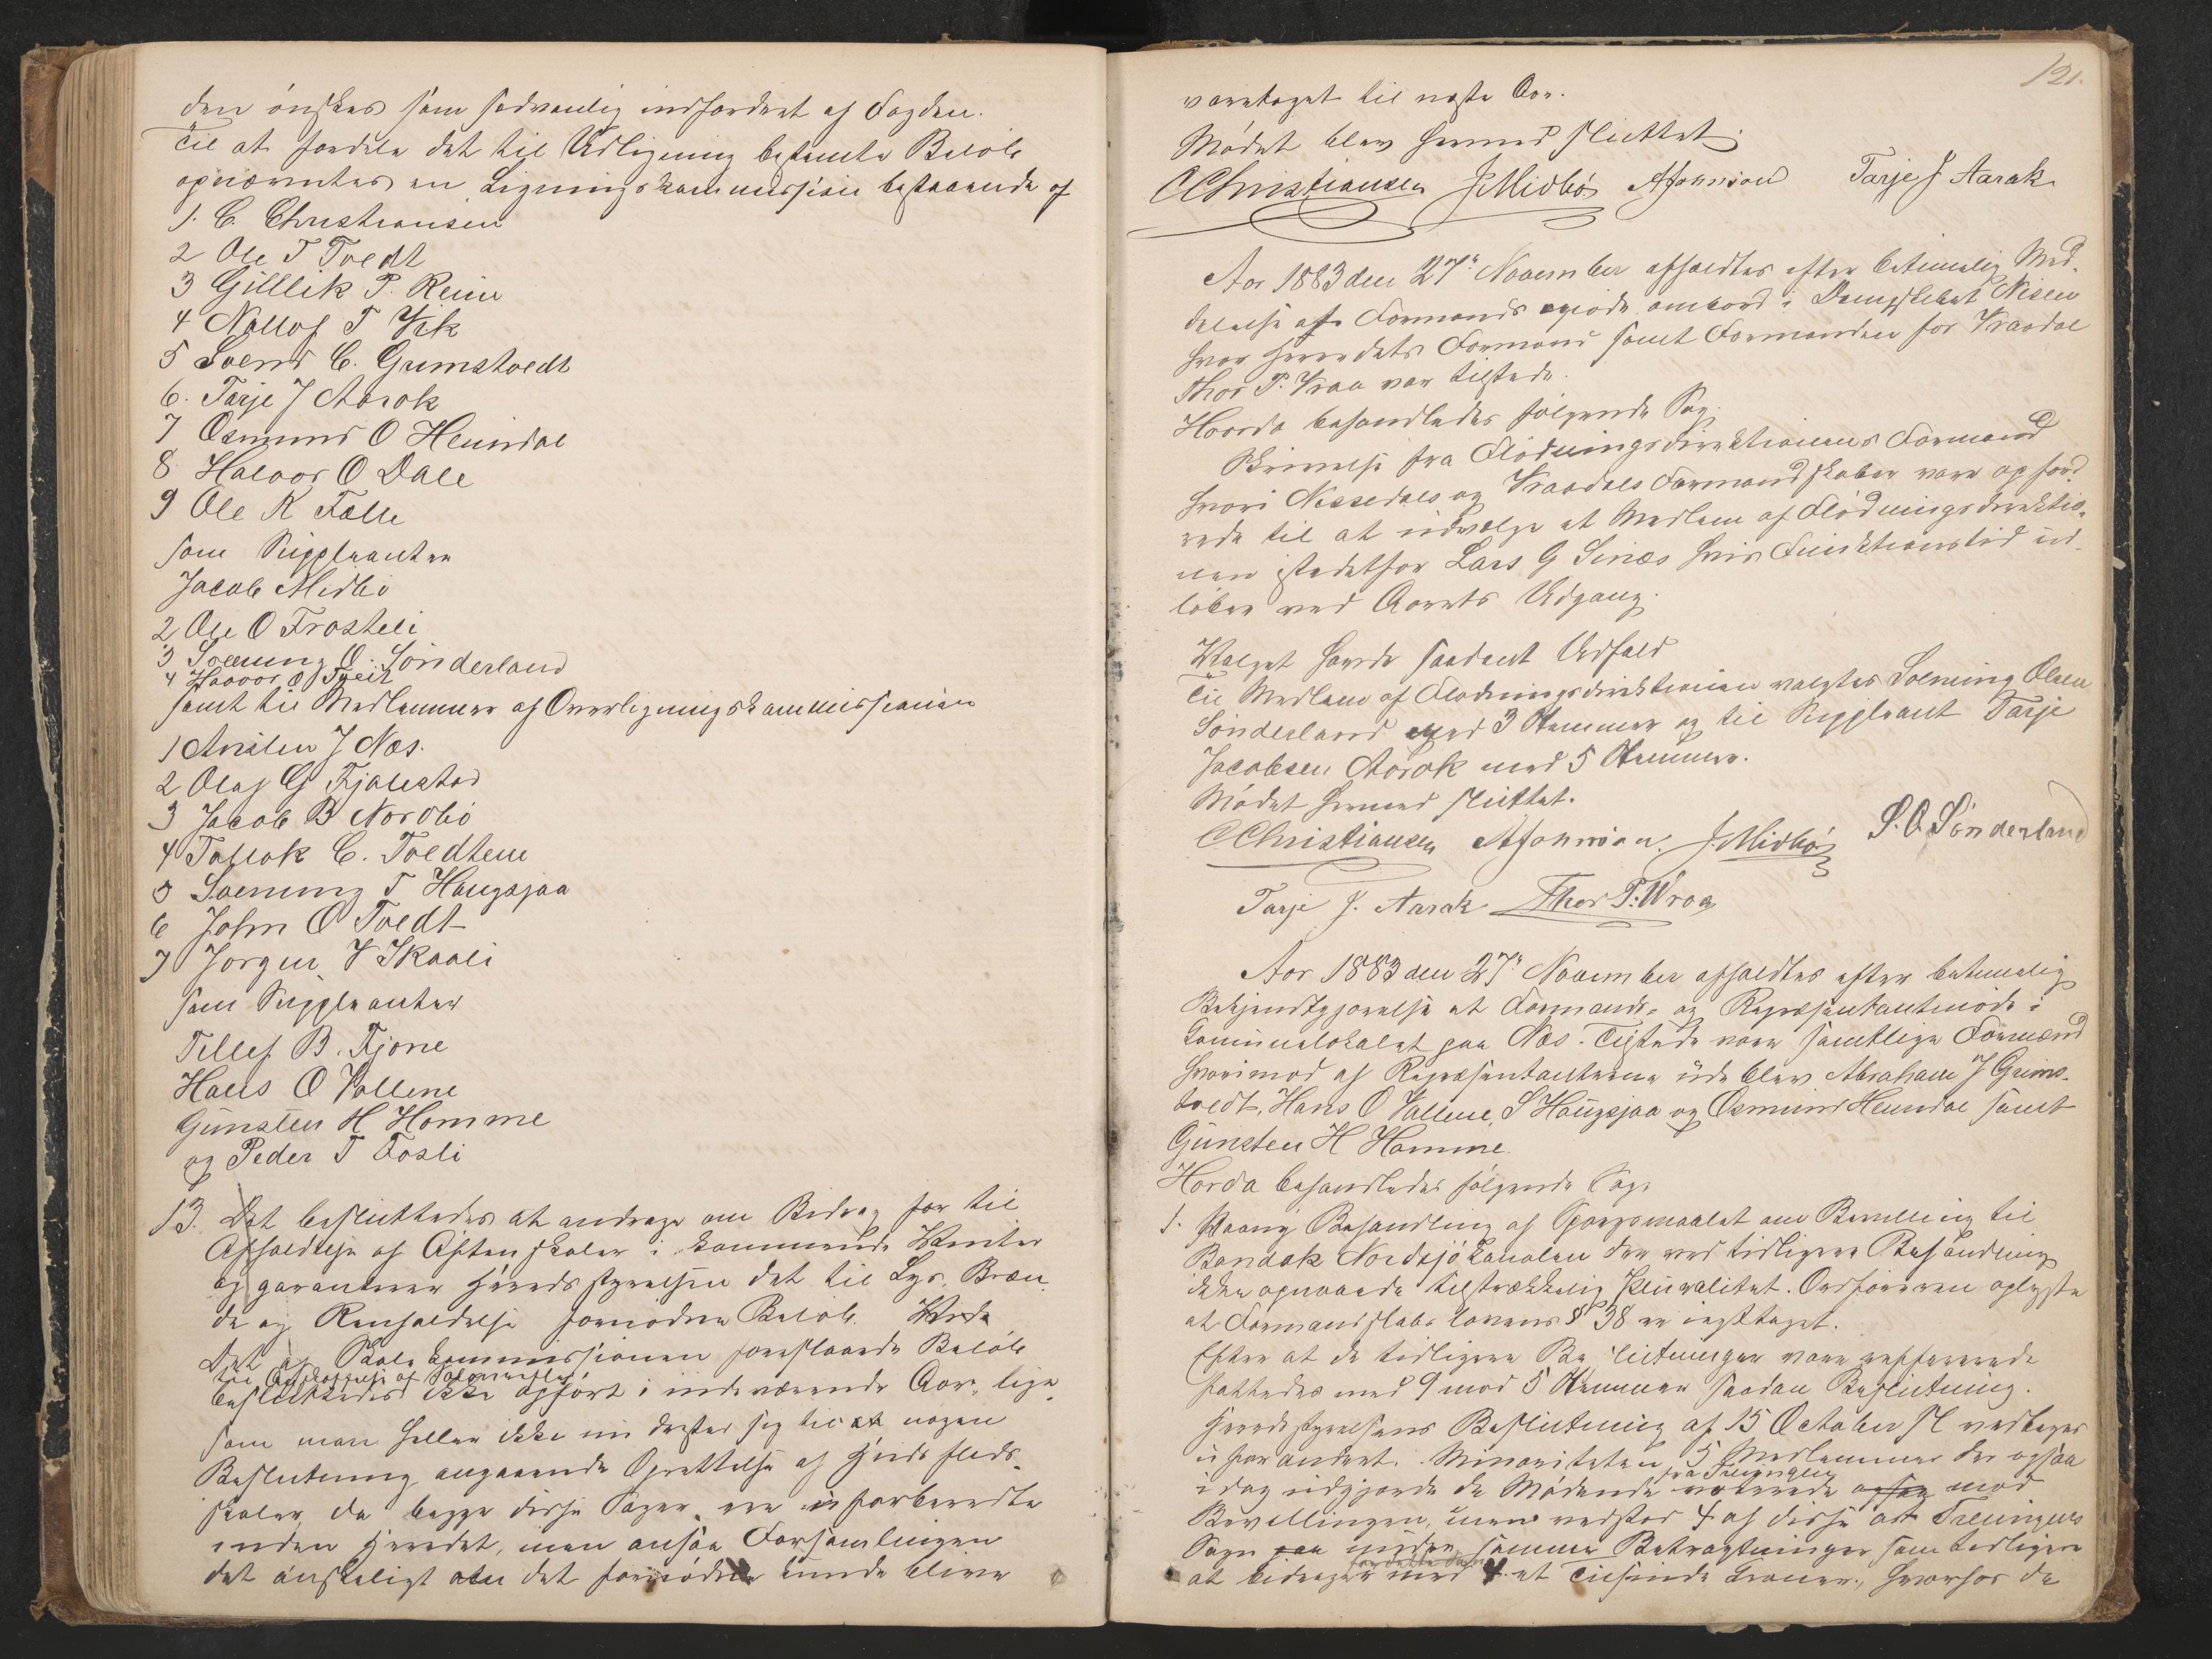 den önskes som sedvanlig indfordret af Fogden.
Til at fordele det til Udligning bestemte Beløb
opnævntes en Ligningskommission bestaaende af
1. C. Christiansen
2 Ole T Tvedt
3 Gjillik P. Reine
4 Nollof T Vik
5 Svend C. Grimstvedt
6. Tarje J Aarak
7 Osmund O Heimdal
8 Halvor O Dale
9 Ole K Felle
som Suppleanter
Jacob Midbö
2 Ole O Frosteli
3 Sveinung O. Sönderland
4 Halvor O Tveit
samt til Medlemmer af Overligningskommissionen
1 Anslen J Næs.
2 Olaf G Fjalestad
3 Jacob B Nordbö
4 Tallak C. Tvedtene
5 Sveinung T Haugsjaa
6 John O Tvedt
7 Jörgen V Skaali
som Suppleanter
Tellef B. Fjone
Hans O Vallene
Gunsten H Homme
og Peder T Fosli
13. Det besluttedes at andrage om Bidrag for til
Afholdelse af Aftenskoler i kommende Vinter
og garanterer Heredsstyrelsen det til Lys, Bræn-
de og Renholdelse fornødne Beløb.
Det af Skolekommissionen foreslaaede Beløb
til Anskaffelse af
besluttedes ikke opført i indeværende Aar, lige
som man heller ikke nu drister sig til at nogen
Beslutning angaaende Oprettelse af Husflids-
skoler, da begge disse Sager ere uforberedte
inden Heredet, men ansaa Forsamlingen
det önskeligt om det fornødne kunde blive
121.
varetaget til næste Aar.
Mödet blev hermed sluttet.
CChristiansen J. Midbö AJohnson Tarje J Aarak
Aar 1883 den 27de November afholdtes efter betimelig Med-
delelse et Formandsmöde ombord i Dampskibet Nisen
hvor Heredets Formænd samt Formanden for Kraadal
Thor P. Vraa var tilstede.
Hvorda behandledes følgende Sag:
Skrivelse fra Flödningsdirektionens Formand
hvori Nissedals og Kraadals Formandskaber vare opford-
rede til at udvælge et Medlem af Flödningsdirektio-
nen istedetfor Lars G Sinæs hvis Funktionstid ud-
löber ved Aarets Udgang.
Valget havde saadant Udfald
Til Medlem af Flødningsdirektionen valgtes Sveinung Olsen
Sönderland med 3 Stemmer og til Suppleant Tarje
Jacobsen Aarak med 5 Stemmer.
Mödet hermed sluttet.
CChristiansen AJohnson. J. Midbö S. O. Sönderland
Tarje J. Aarak Thor P. Wraa
Aar 1883 den 27de November afholdtes efter betimelig
Bekjendtgjørelse et Formands- og Repræsentantmöde i
Communelokalet paa Næs. Tilstede vare samtlige Formænd
hvorimod af Repræsentanterne udeblev Abraham J Grims-
tvedt, Hans O Vallene, S Haugsjaa og Osmund Heimdal samt
Gunsten H Homme.
Hvorda behandledes følgende Sag:
1. Paany Behandling af Spørgsmaalet om Bevilling til
Bandak Nordsjökanalen der ved tidligere Behandling
ikke opnaaede tilstrækkelig Pluralitet. Ordføreren oplyste
at Formandskabslovens § 38 er iagttaget.
Efter at de tidligere Beslutninger vare refererede
fattedes med 9 mod 5 Stemmer saadan Beslutning.
Heredsstyrelsens Beslutning af 15 October sl vedtages
uforandret. Minoriteten 5 Medlemmer der ogsaa
i dag udgjorde de Mödende fra Treungen voterede ogsaa mod
Bevillingen, men vedstod 4 af disse at Treungens
Sogn under samme Betragtninger som tidligere
at bidrager med et Tusinde Kroner, hvorfor de